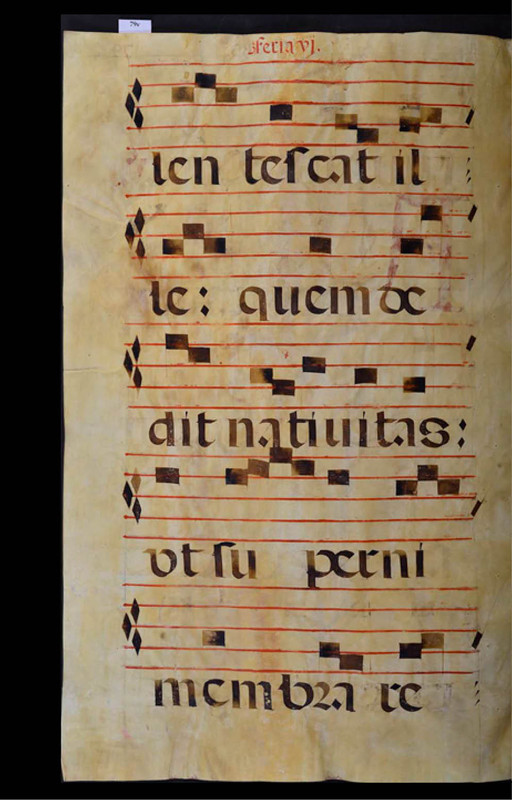 79v
feria vj.
len tescat il
le: quem de
dit natiuitas:
vt su perni
membra re